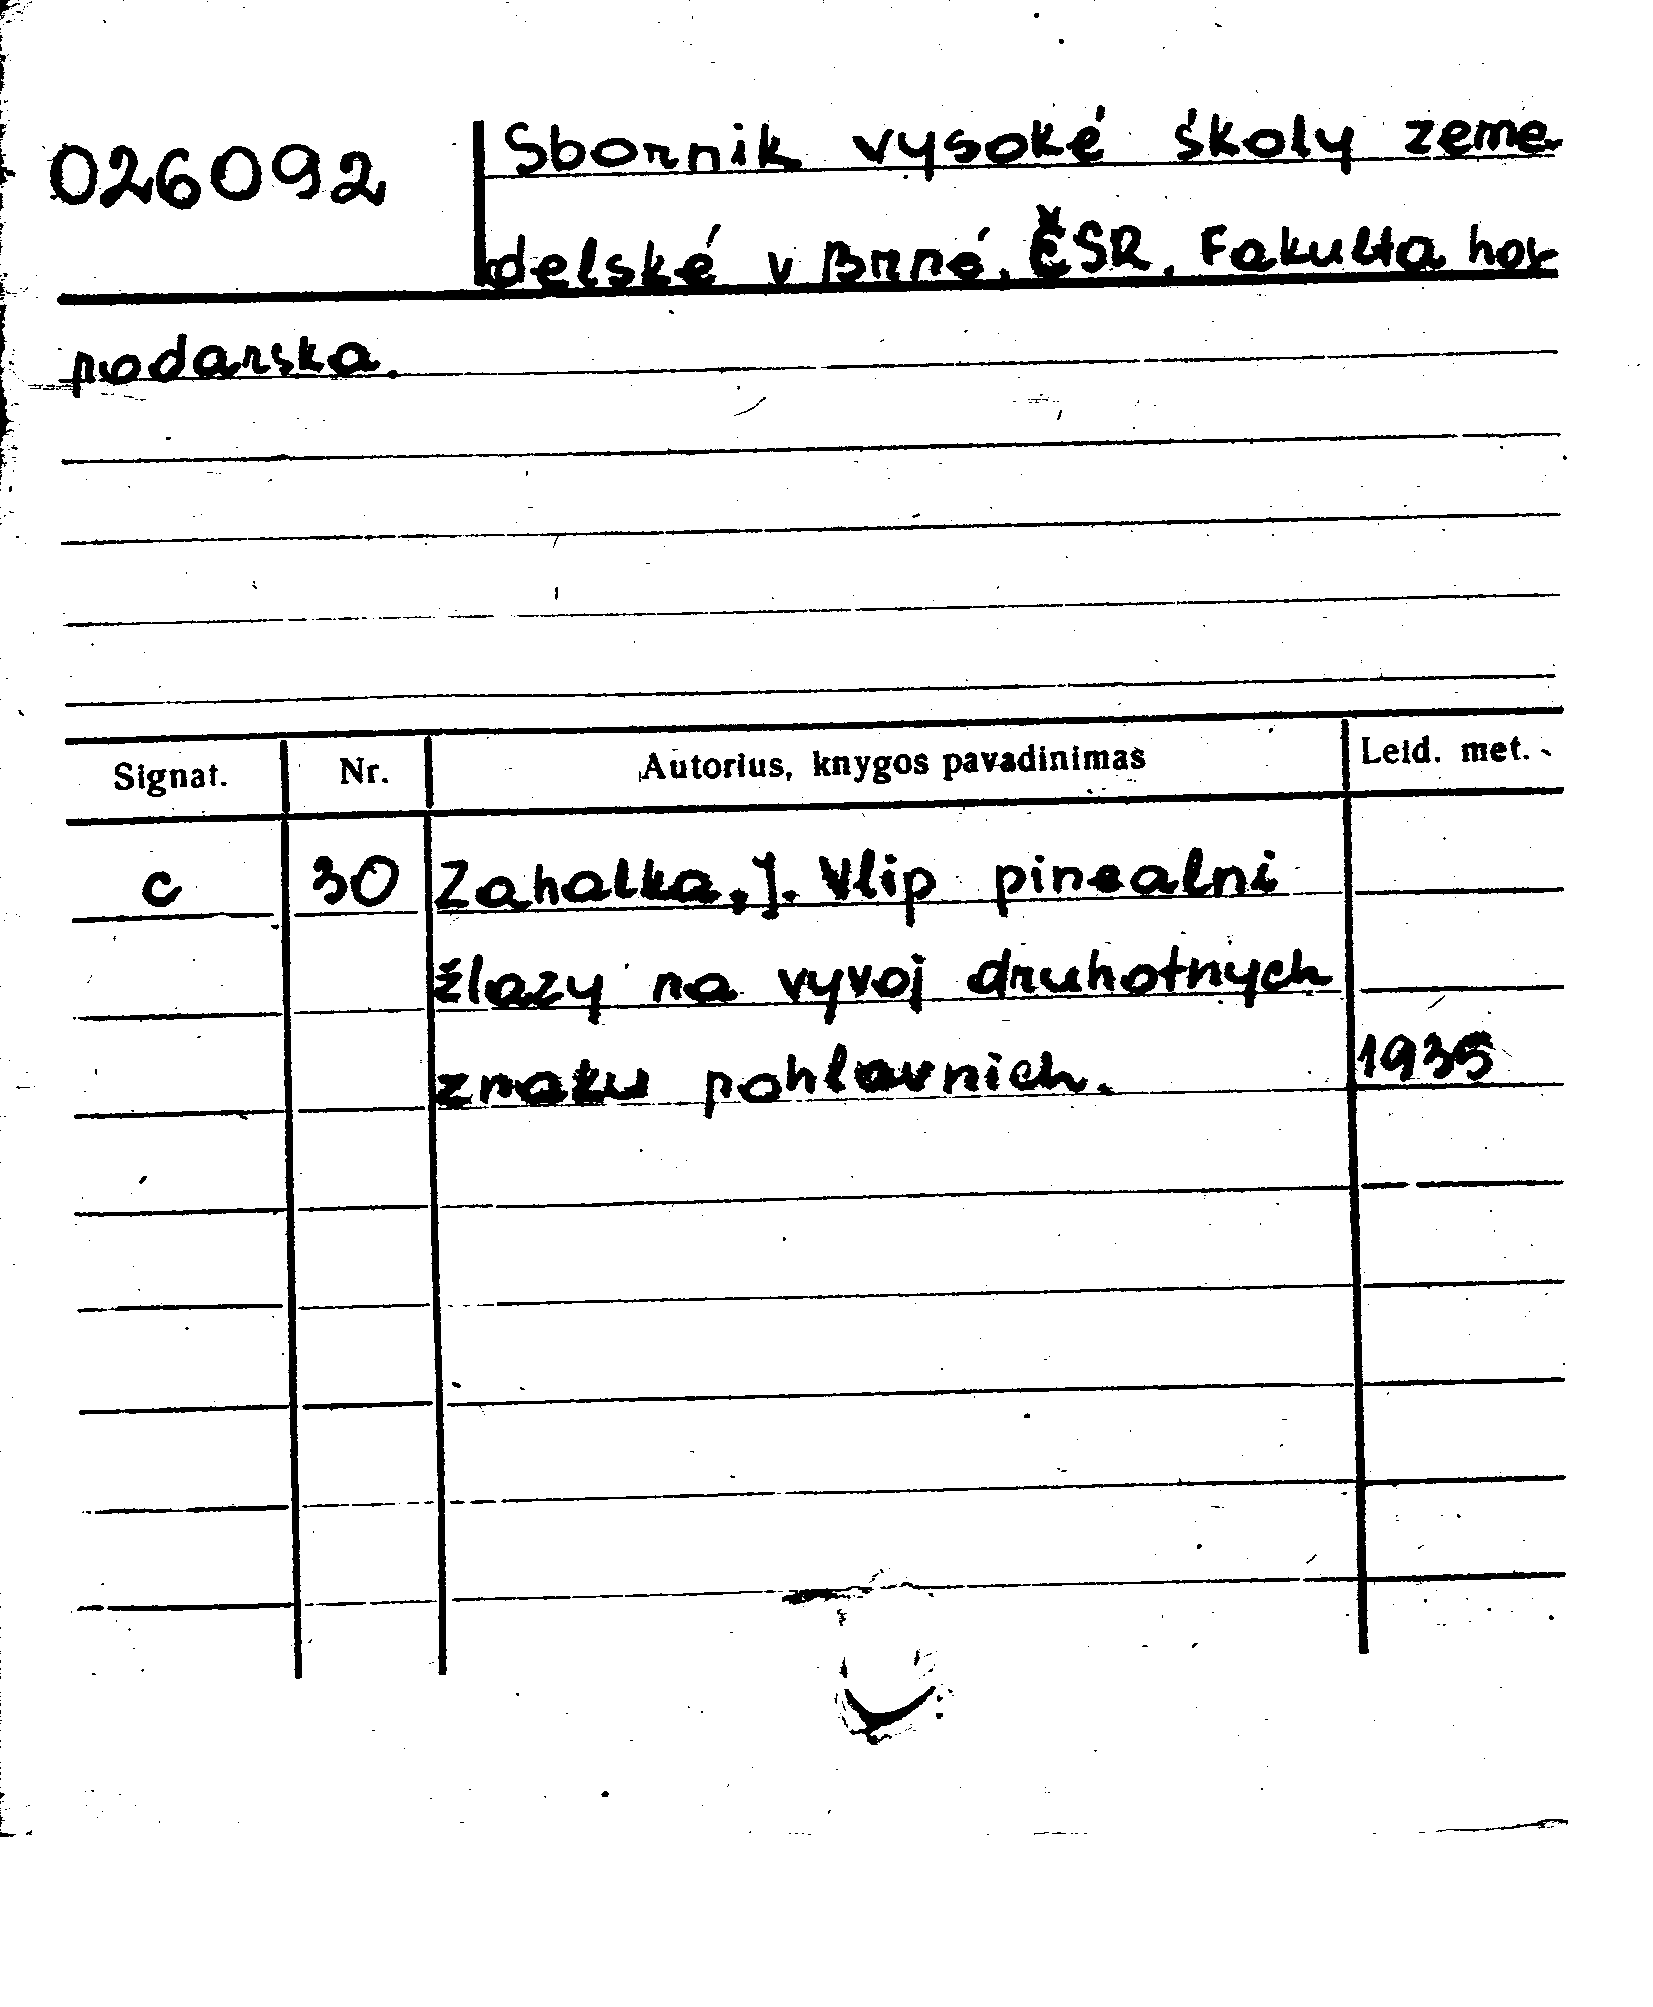 026092
Sbornik vysoké školy zeme-
delské v Brné, ČSR. Fakulta hos-
podarska.
Signat. Nr. Autorius, knygos pavadinimas Leid. met.
c 30 Zahalka, J. Vlip pinealni
žlazy na vyvoj druhotnych
znaku pohlavnich. 1935